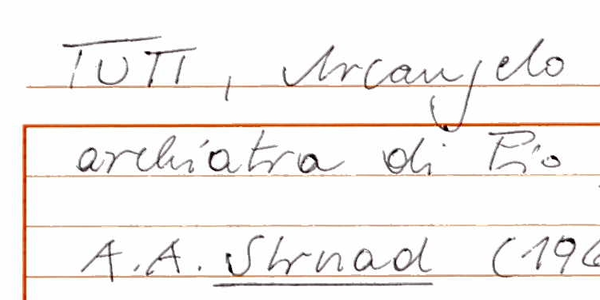 TUTI, Arcangelo
archiatra di Pio
A.A. Strnad (196